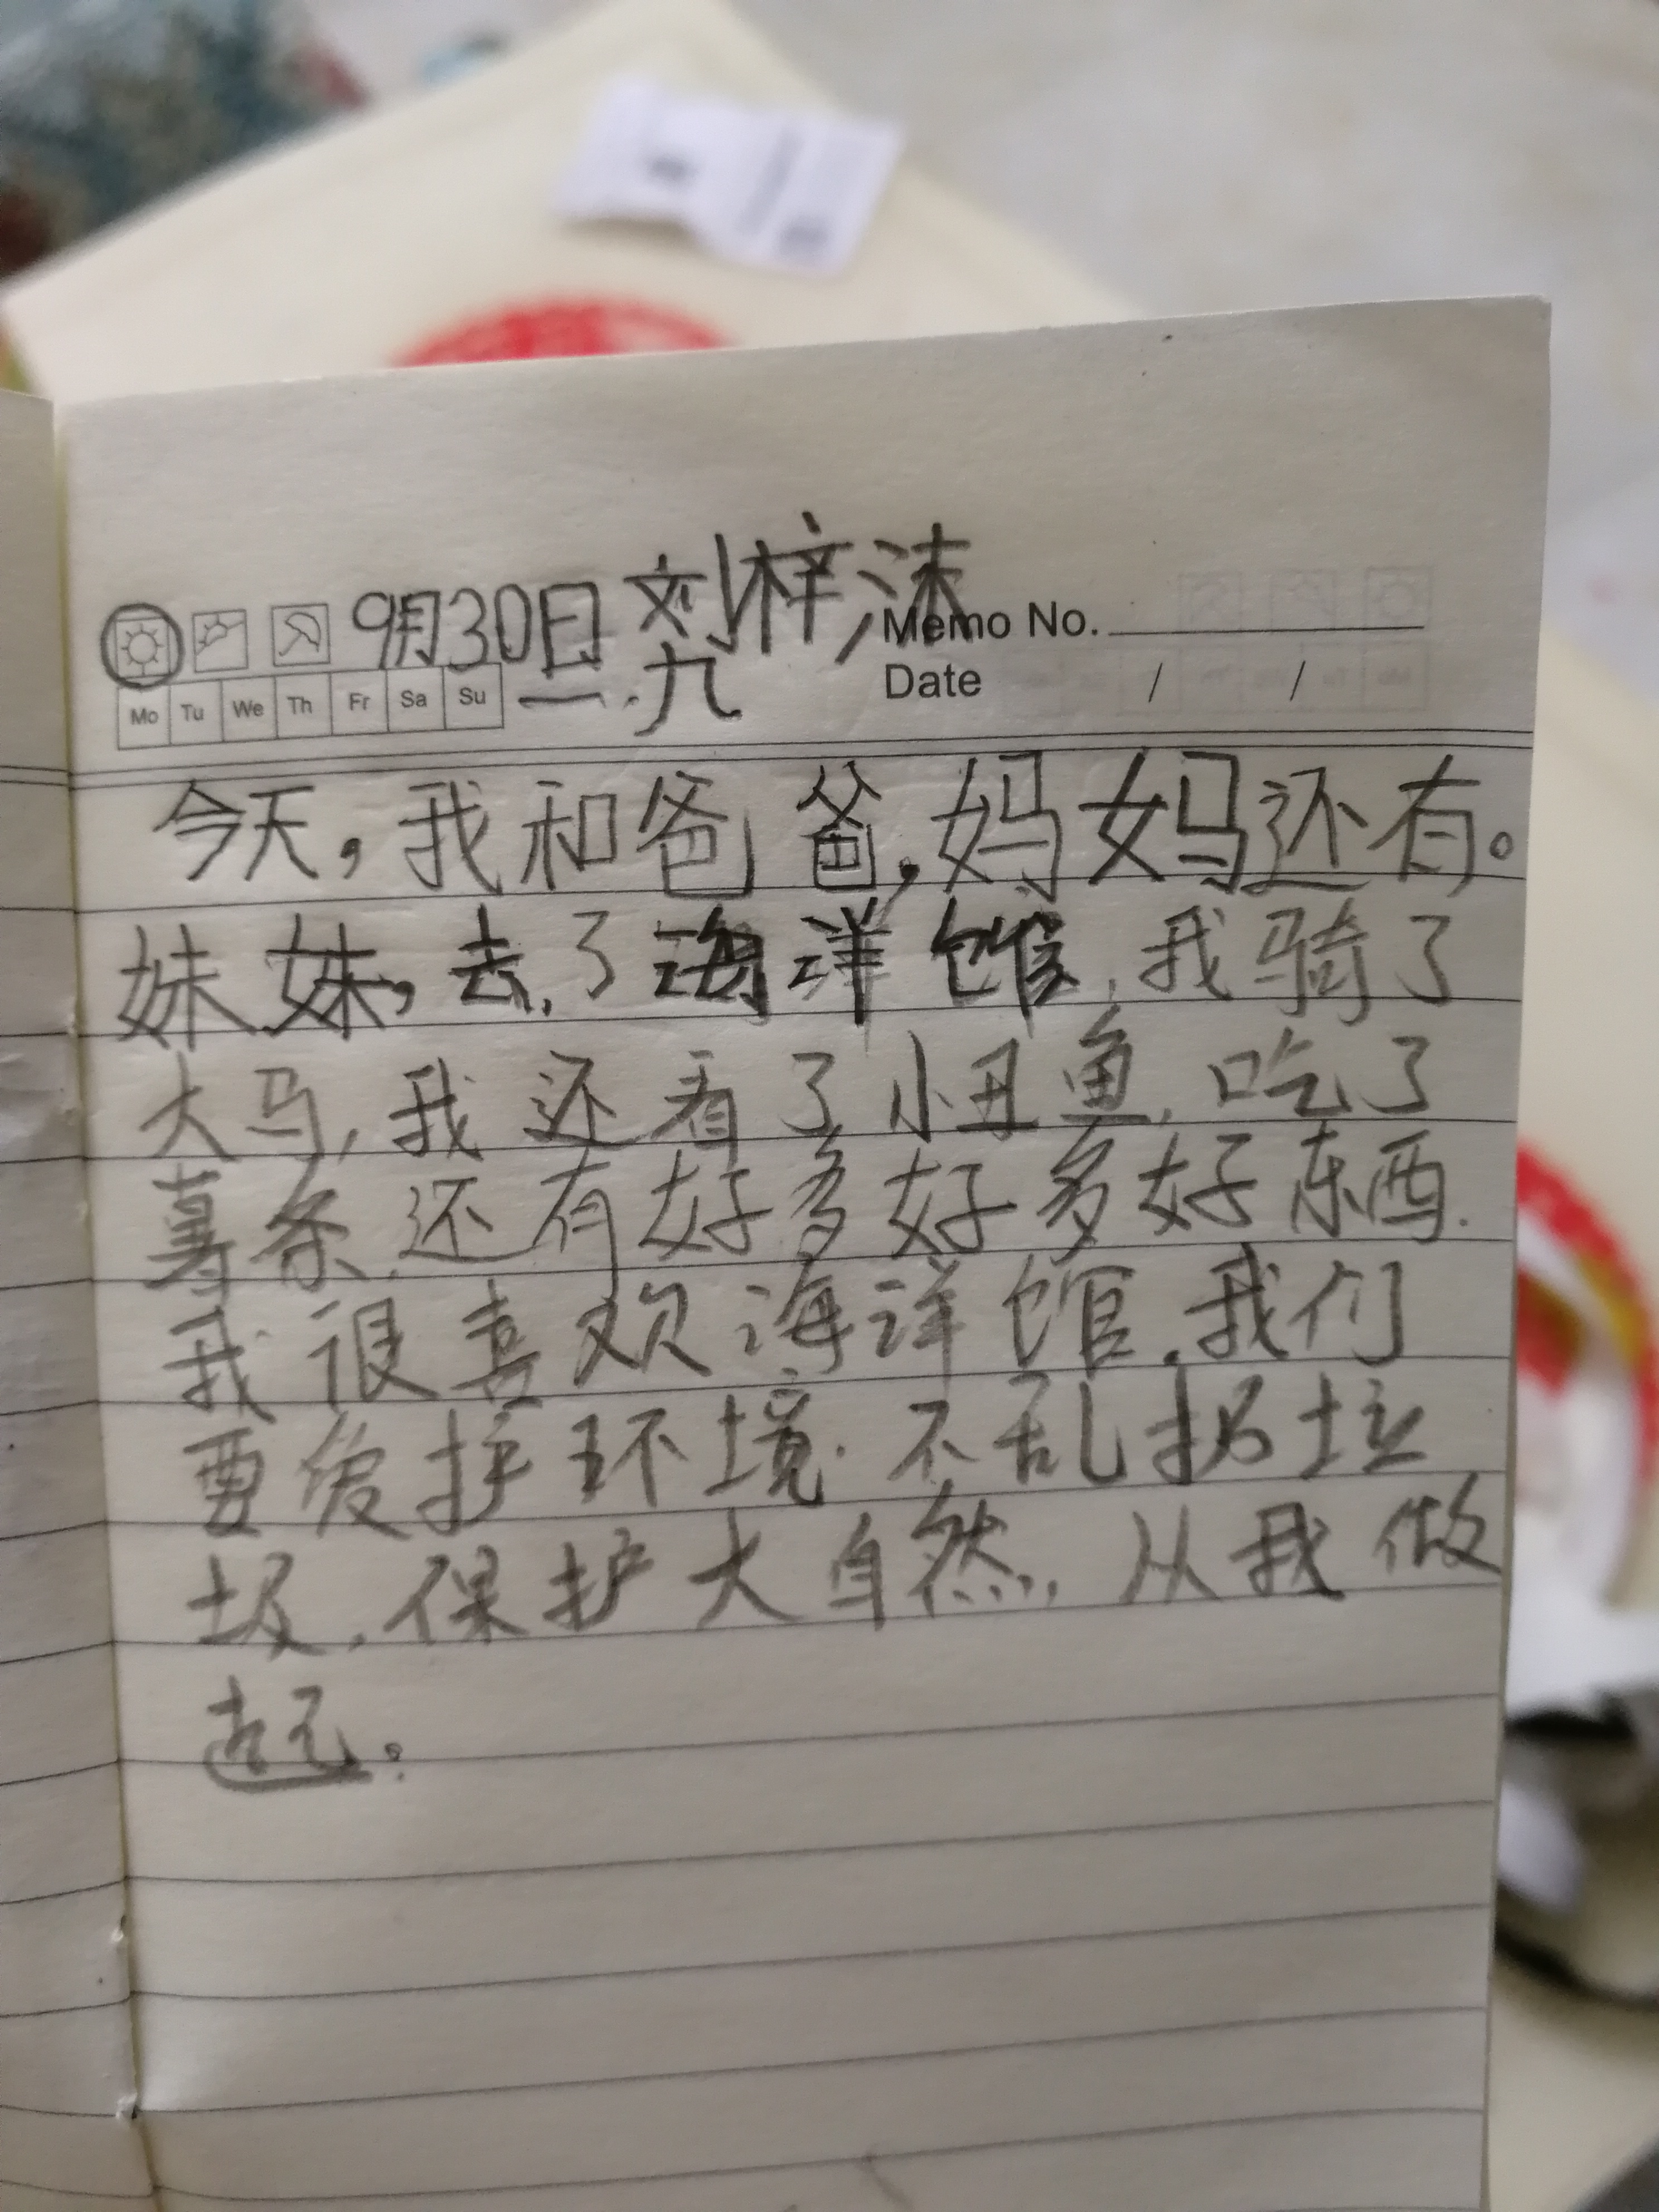 9月30日 刘梓沫
Memo No.
Mo Tu We Th Fr Sa Su 一.九 Date / /
今天,我和爸爸,妈妈还有。
妹妹,去了海洋馆,我骑了
大马,我还看了小丑鱼,吃了
薯条,还有好多好多好东西.
我很喜欢海洋馆,我们
要爱护环境.不乱扔垃
圾,保护大自然,从我做
起。